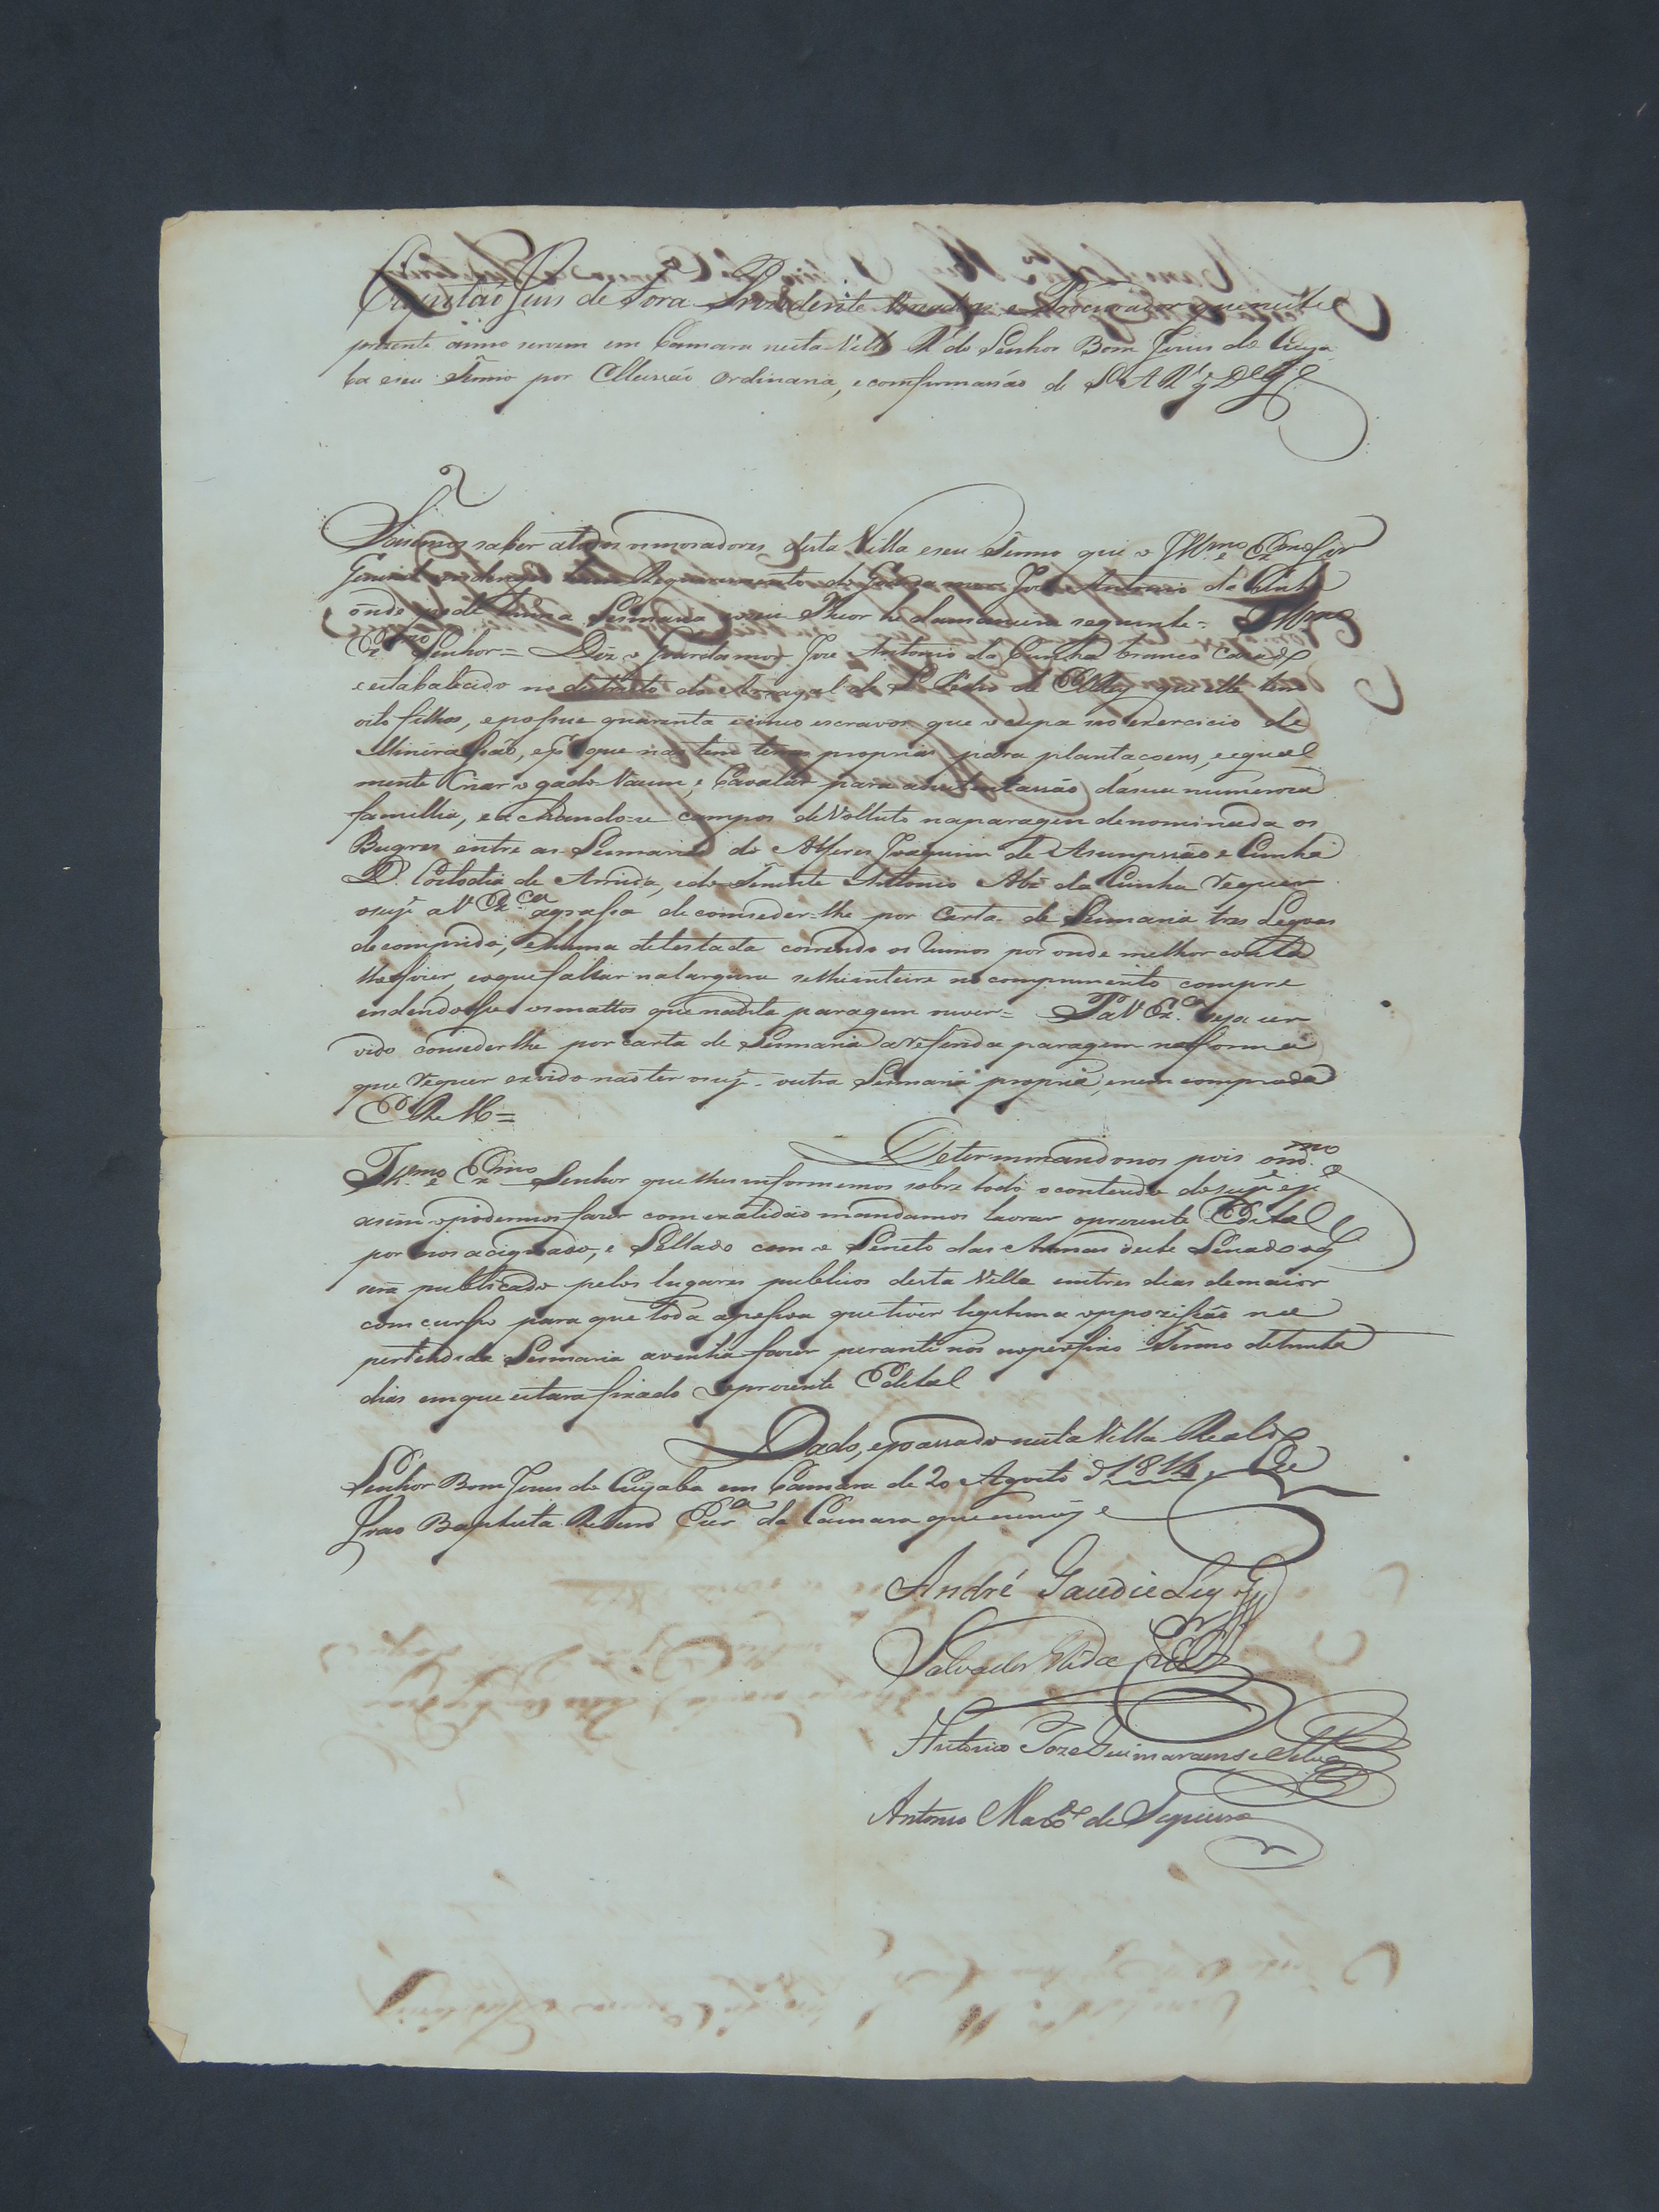 Capitaõ Juis de Fora Prezidente Vereadores e Procurador que neste
prezente anno servem em Camara nesta Villa Rl do Senhor Bom Jezus do Cuya
ba e seu Termo por Elleissaõ Ordinaria, e comfirmassaõ de S A Rl q Ds Ge
Fasemos saber atodos os moradores desta Villa e seu Termo que o Illmo e Exmo Snr
General hum Requerimento do Guarda mor Joze Antonio da Cunha
onde pede huma Sesmaria cujo Theor he damaneira seguinte = Illmo
Exmo Senhor = Diz o Guardamor Joze Antonio da Cunha branco cazado
e estabalecido no destricto do Arrayal de S Pedro de ElRey que elle tem
oito filhos, e pofsue quarenta e sinco escravos que ocupa no exercicio de
Minirafsaõ, e pr que naõ tem terras proprias para plantaçoens, e egual
mente Criar o gado Vacum, e Cavalar para asustentassaõ dasua numeroza
familhia, e achandose campos deVolluto naparagem denominada os
Bugres entre as Sesmarias do Alferes Joaquim de Asumpssaõ e Cunha
D. Costodia de Arruda, e do Tenente Antonio Abe da Cunha Requer
osupe a V Exca agrafsa deconseder-lhe por Carta de Sesmaria tres Legoas
decomprido, e huma detestada correndo os Rumos por onde melhor conta
lhe fizer, eoquefaltar nalargura selheinteire no comprimento compre
endendofse osmattos quenadita paragem ouver = P a V Exa seja ser
vido consederlhe por carta de Sesmaria aRefirida paragem naforma
que Requer evisto naõ ter osupe outra Sesmaria propria, enem comprada
E R M =
Determinandonos pois omo
Illmo e Exmo Senhor quelhes informemos sobre todo oconteudo dosupe epa
asim opodermos fazer comexatidaõ mandamos lavrar oprezente Edital
por nos acignado, e Sellado com o Sineto das Armas deste Senado oql
será publicado pelos lugares publicos desta Villa emtres dias demaior
comcurfso para que toda apefsoa quetiver legitima oppozifsaõ na
pertendida Sesmaria avenha fazer perante nos noperefixo Termo detrinta
dias emque estara fixado oprezente Edital
Dado, epassado nesta Villa Real do
Senhor Bom Jezus do Cuyaba em Camara de 20 Agosto d 1814, Eu
Joao Baptista Escram da Camara que escrevy e
André Gaudie Ley
Salvador
Antonio Joze Guimaraens e Silva
Antonio de Siqueira